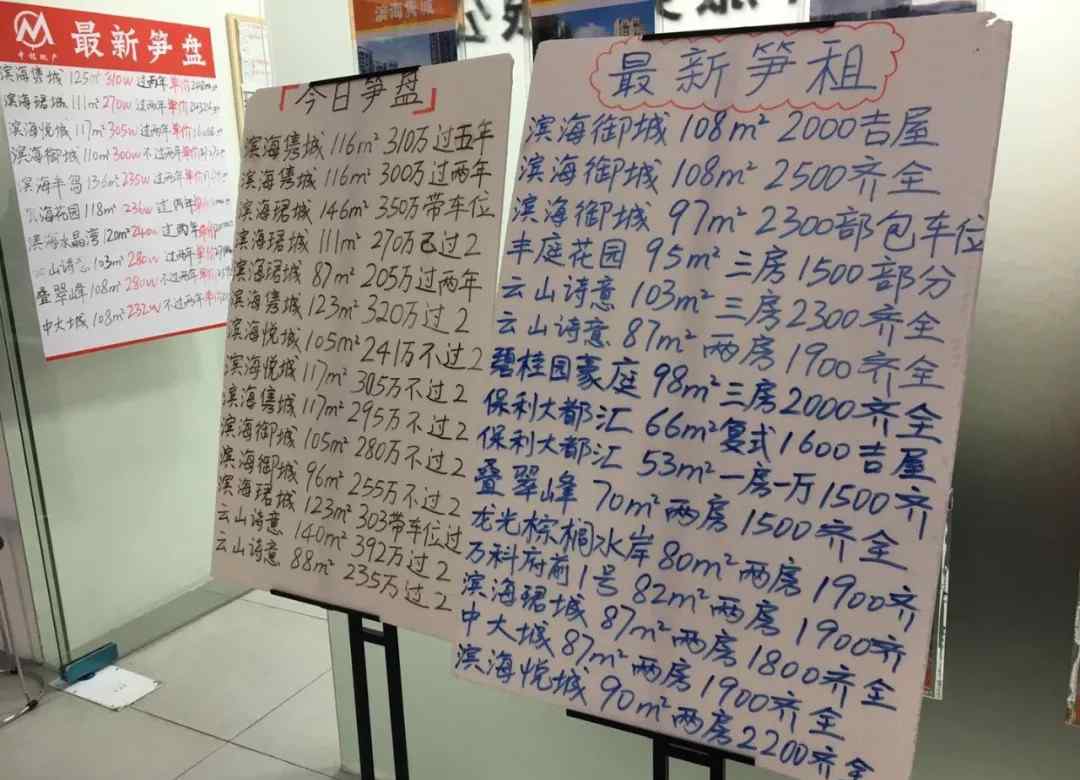 最新笋盘
滨海隽城 125m² 310W 过两年 单价
滨海珺城 111m² 270W 过两年 单价
滨海悦城 117m² 305W 过两年 单价
滨海御城 110m² 300W 不过两年 单价
滨海半岛 136m² 235W 过两年 单价
海花园 118m² 236W 过两年
滨海水晶湾 120m² 240W 过两年
云山诗意 103m² 280W 过两年 单价
叠翠峰 108m² 280W 不过两年 单价
中大城 108m² 232W 不过两年 单价
「今日笋盘」
滨海隽城 116m² 310万过五年
滨海隽城 116m² 300万过两年
滨海珺城 146m² 350万带车位
滨海珺城 111m² 270万已过2
滨海珺城 87m² 205万过两年
滨海隽城 123m² 320万过2
滨海悦城 105m² 241万不过2
滨海悦城 117m² 305万不过2
滨海隽城 117m² 295万不过2
滨海御城 105m² 280万不过2
滨海御城 96m² 255万不过2
滨海珺城 123m² 303带车位过
云山诗意 140m² 392万过2
云山诗意 88m² 235万过2
滨海
最新笋租
滨海御城 108m² 2000吉屋
滨海御城 108m² 2500齐全
滨海御城 97m² 2300部包车位
丰庭花园 95m² 三房1500部分
云山诗意 103m² 三房2300齐全
云山诗意 87m² 两房1900齐全
碧桂园豪庭 98m² 三房2000齐全
保利大都汇 66m² 复式1600吉屋
保利大都汇 53m² 一房一万1500齐
叠翠峰 70m² 两房1500齐全
龙光棕榈水岸 80m² 两房1900齐
万科府前1号 82m² 两房1900齐
滨海珺城 87m² 两房1800齐全
中大城 87m² 两房1900齐全
滨海悦城 90m² 两房2200齐全